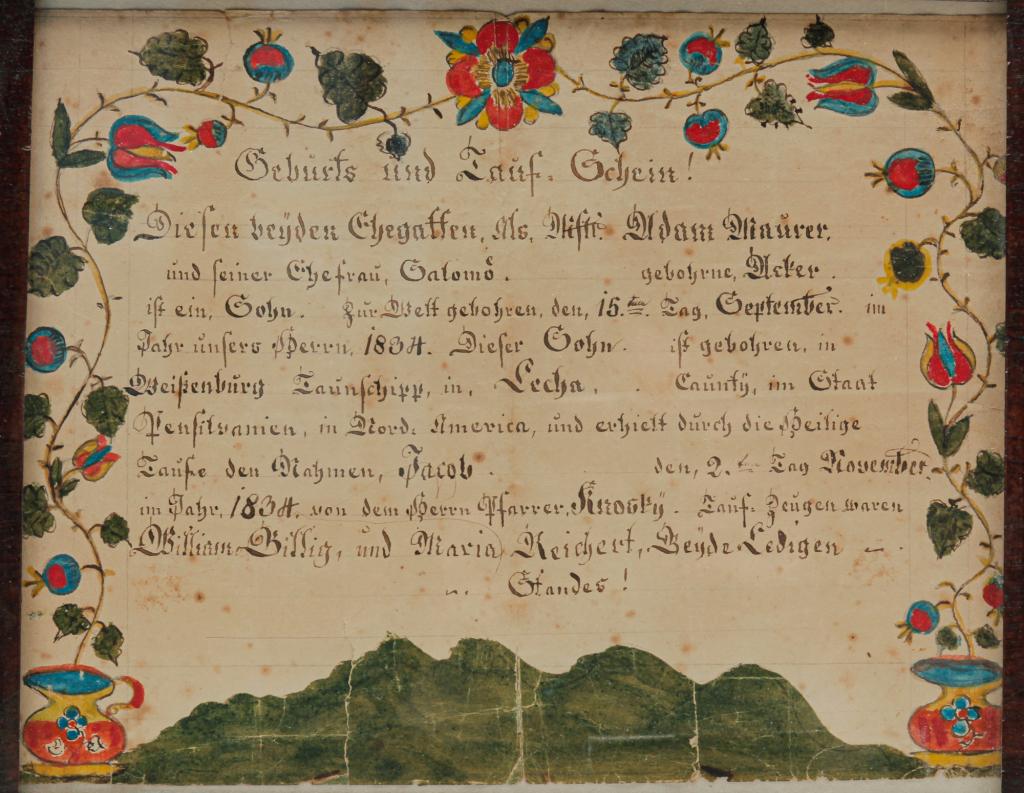 Geburts und Tauf-Schein!
Diesen beyden Ehegatten, Als, Mstr: Adam Maurer,
und seiner Ehefrau, Salomö. gebohrne, Acker.
ist ein, Sohn. Zur Welt gebohren, den, 15.ten Tag, September. im
Jahr unsers Herrn, 1834. Dieser Sohn. ist gebohren, in
Weißenburg Taunschipp, in, Lecha, Caunty, im Staat
Pensilvanien, in Nord: America, und erhielt durch die Heilige
Taufe den Nahmen, Jacob. den, 2.ten Tag November.
im Jahr, 1834. von dem Herrn Pfarrer, Knosky. Tauf-Zeugen waren
William Billig, und Maria Reichert, Beyde Ledigen
Standes!